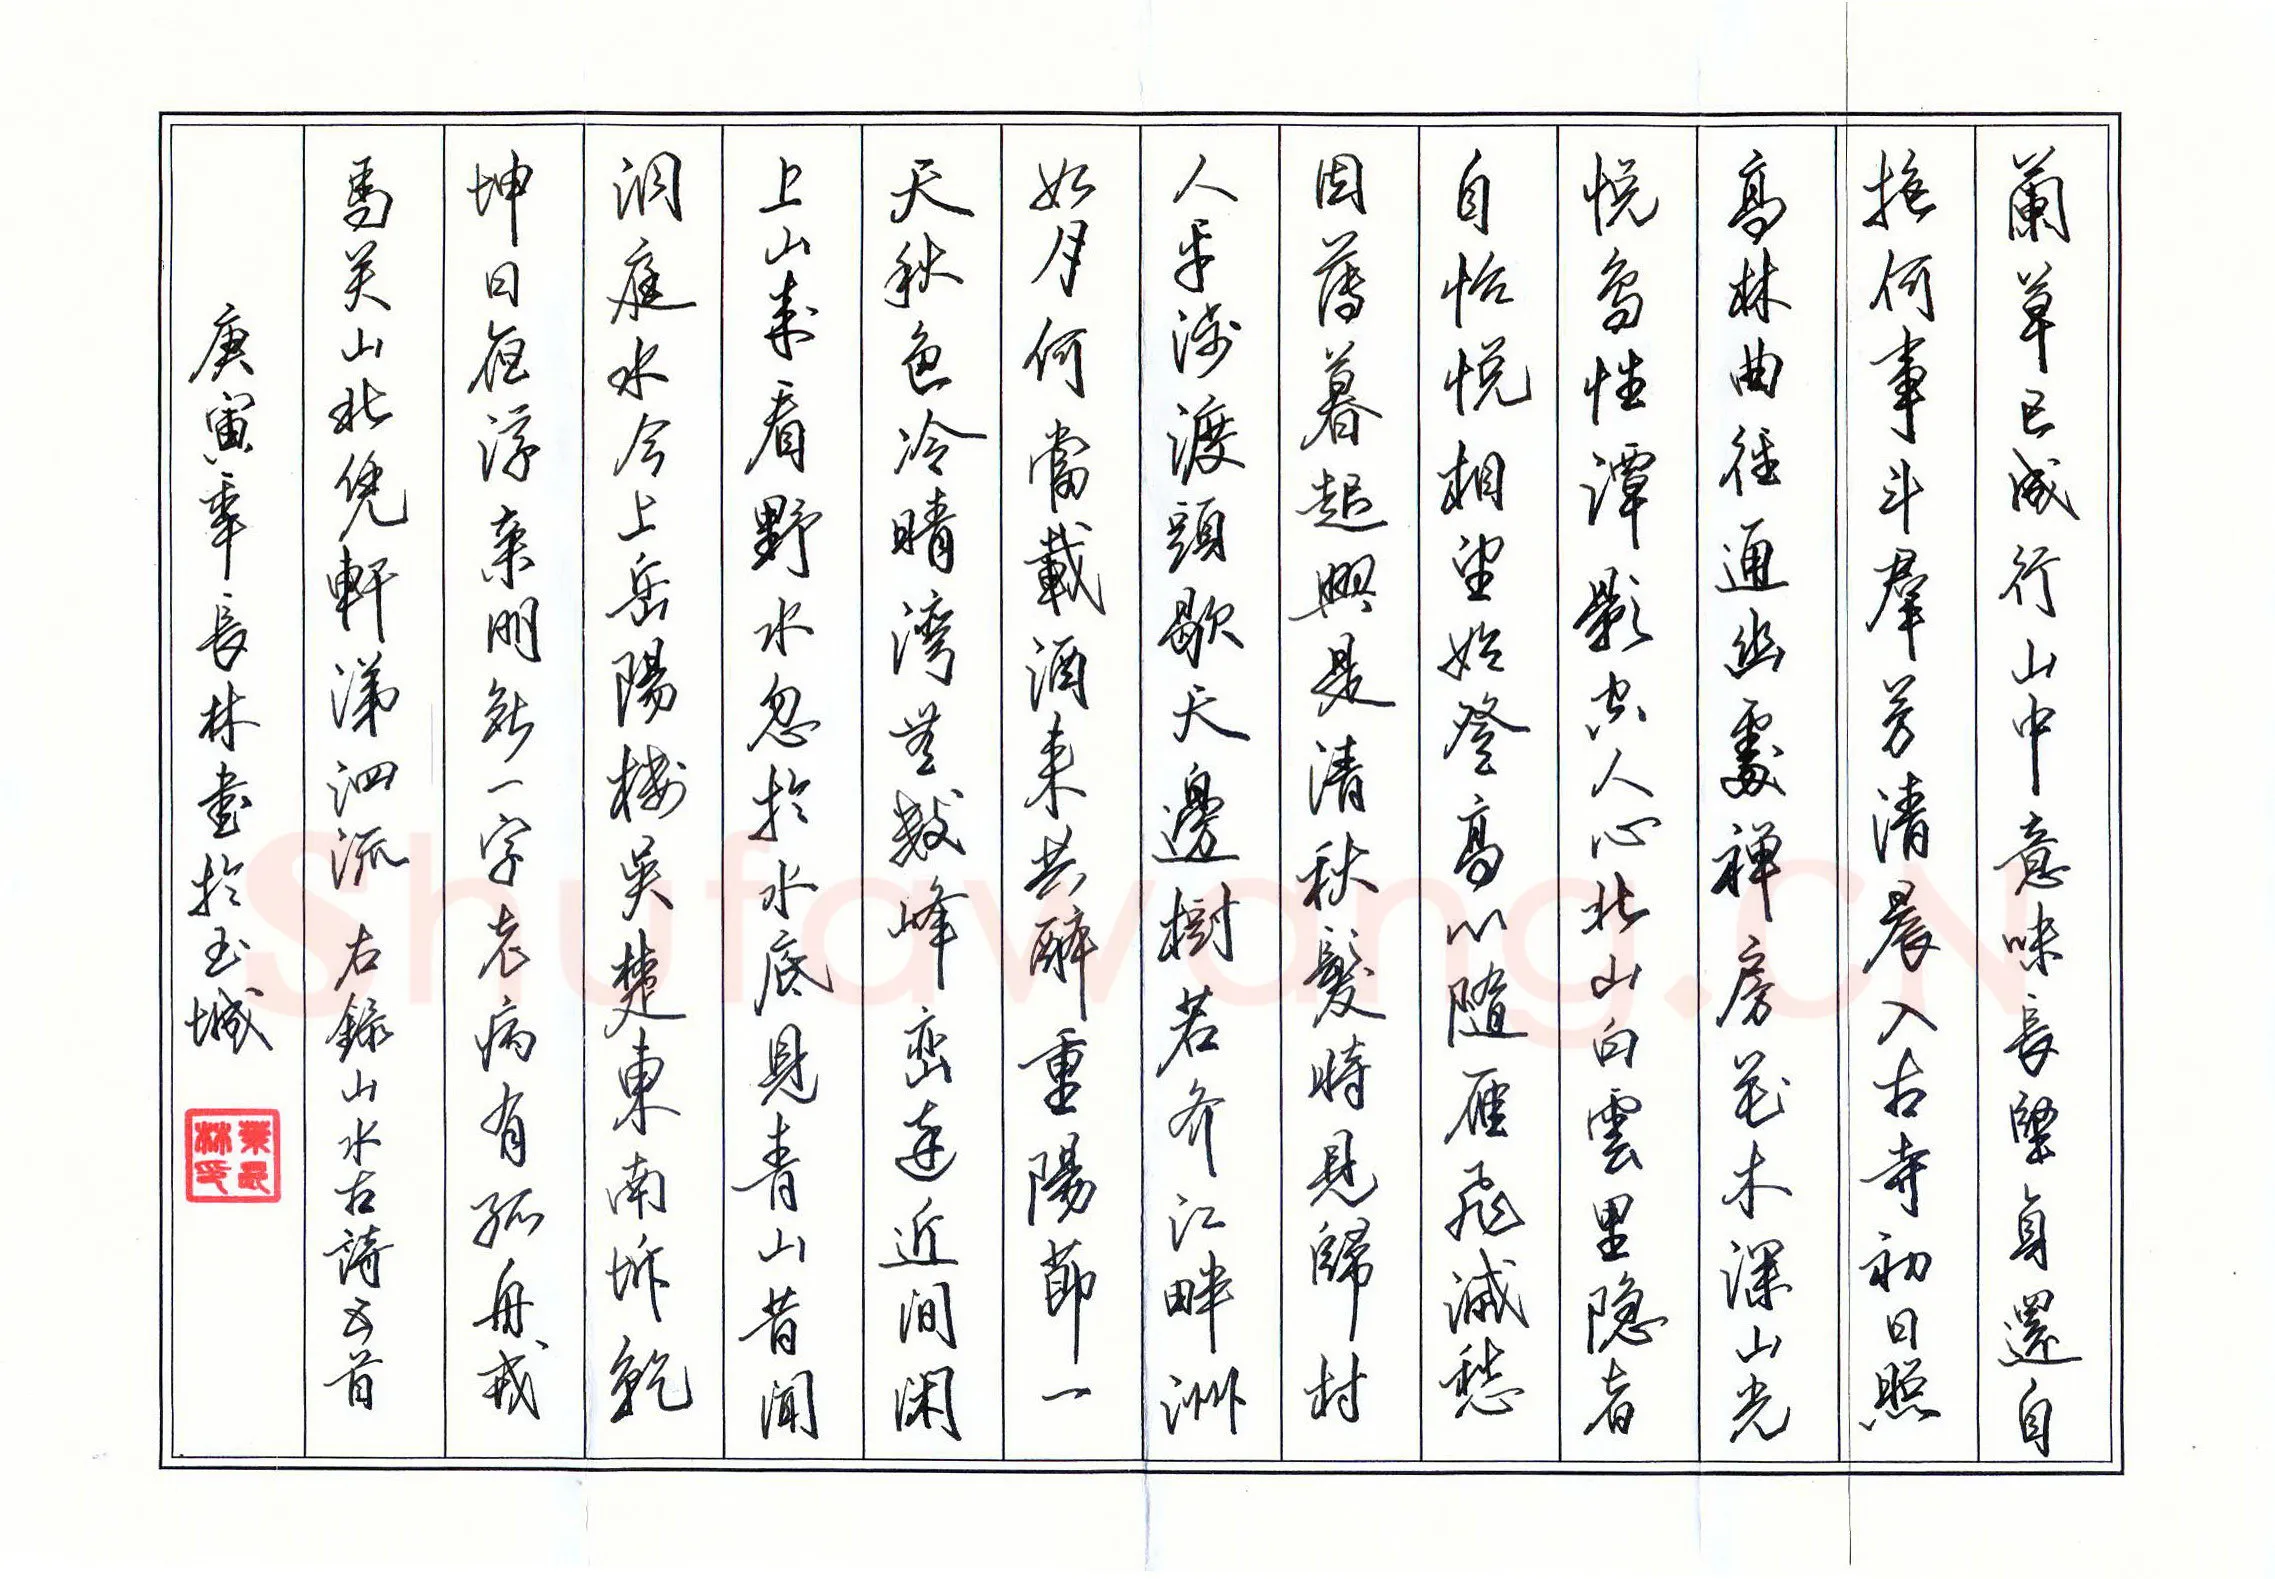 蘭草已成行山中意味長堅身還自
抱何事斗羣芳清晨入古寺初日照
高林曲徑通幽處禅房花木深山光
悦鳥性潭影空人心北山白雲里隐者
自怡悦相望始登高心隨雁飛滅愁
因薄暮起興是清秋發時見歸村
人平沙渡頭歇天邊樹若齐江畔洲
如月何當載酒来共醉重陽節一
天秋色冷晴湾無數峰巒遠近間闲
上山来看野水忽於水底見青山昔聞
洞庭水今上岳陽樓吴楚東南坼乾
坤日夜浮亲朋無一字老病有孤舟戎
馬关山北凭軒涕泗流 右録山水古詩五首
庚寅年長林書於玉城
Shufawang.CN